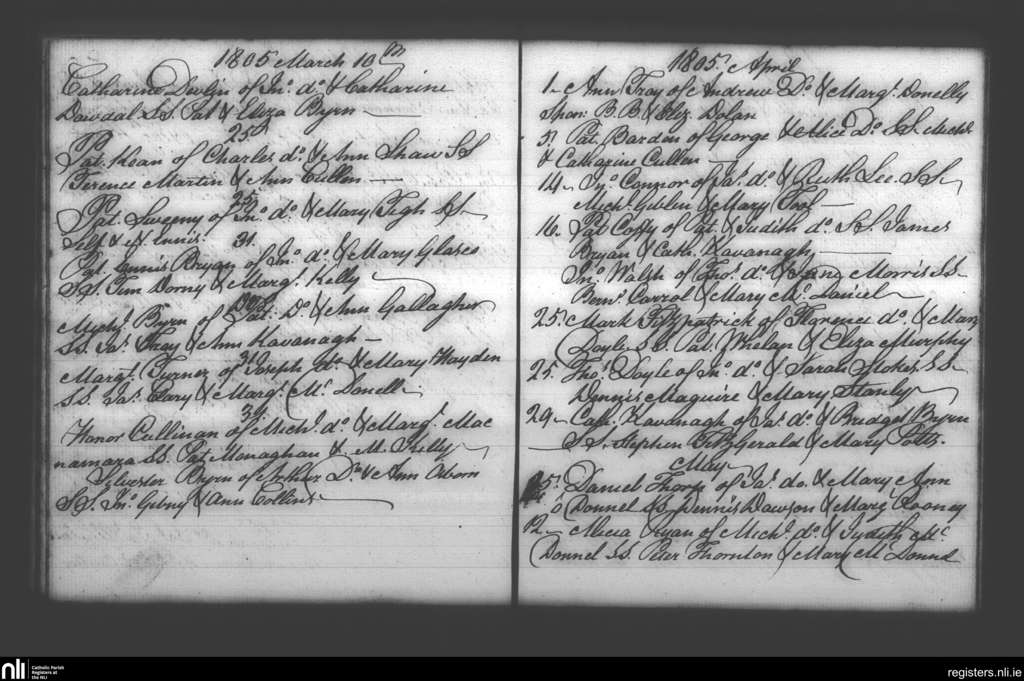 1805 March 10th
Catharine Devlin of Jno. do. & Catharine
Dowdal Ss. Pat & Eliza Byrn
25
Pat. Kean of Charles do. & Ann Shaw SS
Terence Martin & Ann Cullen
Pat. Sweeny of Jno. do. & Mary Tigh SS
Self &
31.
Pat. Bryan of Jno. do. & Mary
SS. Tim Dorny & Margt. Kelly
Michl. Byrn of Pat. Do. & Ann Gallagher
Ss. Jas. & Ann Kavanagh
31
Margt. Turner of Joseph do. & Mary Hayden
Ss. Jas. Cary & Margt. Mc. Donell
31.
Honor Cullinan of Michl. do. & Margt. Mac
namara Ss. Pat Monaghan & M. Reilly
Silvester Byrn of Arthur Do. & Ann
SS. Jno. Gibny & Ann Collins
1805. April
1. Ann of Andrew Do. & Margt. Donelly
Spon: B.B. & Eliz. Dolan
5. Pat. Barden of George & Alice Do. SS. Michl.
& Catharine Cullen
14. Jno. Connor of Jas. do. & Ruth Lee SS.
Michl. & Mary
16. Pat of Pat. & Judith do. Ss. James
Bryan & Cath. Kavanagh
Jno. Walsh of Thos. do. & Jane Morris Ss.
Bernd. Carrol & Mary Mc. Daniel
25. Mark Fitzpatrick of Florence do. & Mary
Doyle Ss. Pat. Phelan & Eliza Murphy
25. Thos. Doyle of Jno. do. & Sarah Stokes SS.
Dennis Maguire & Mary Stanly
29. Cath. Kavanagh of Jas. do. & Bridget Byrn
Ss. Stephen Fitzgerald & Mary Potts.
May
5. Daniel of Jas. do. & Mary Ann
o Donnel SS. Dennis Dawson & Margt. Rooney
12. Ryan of Michl. do. & Judith Mc.
Donnel Ss. Peter Thornton & Mary Mc Donnel
nli
Catholic Parish
Registers at
the NLI
registers.nli.ie